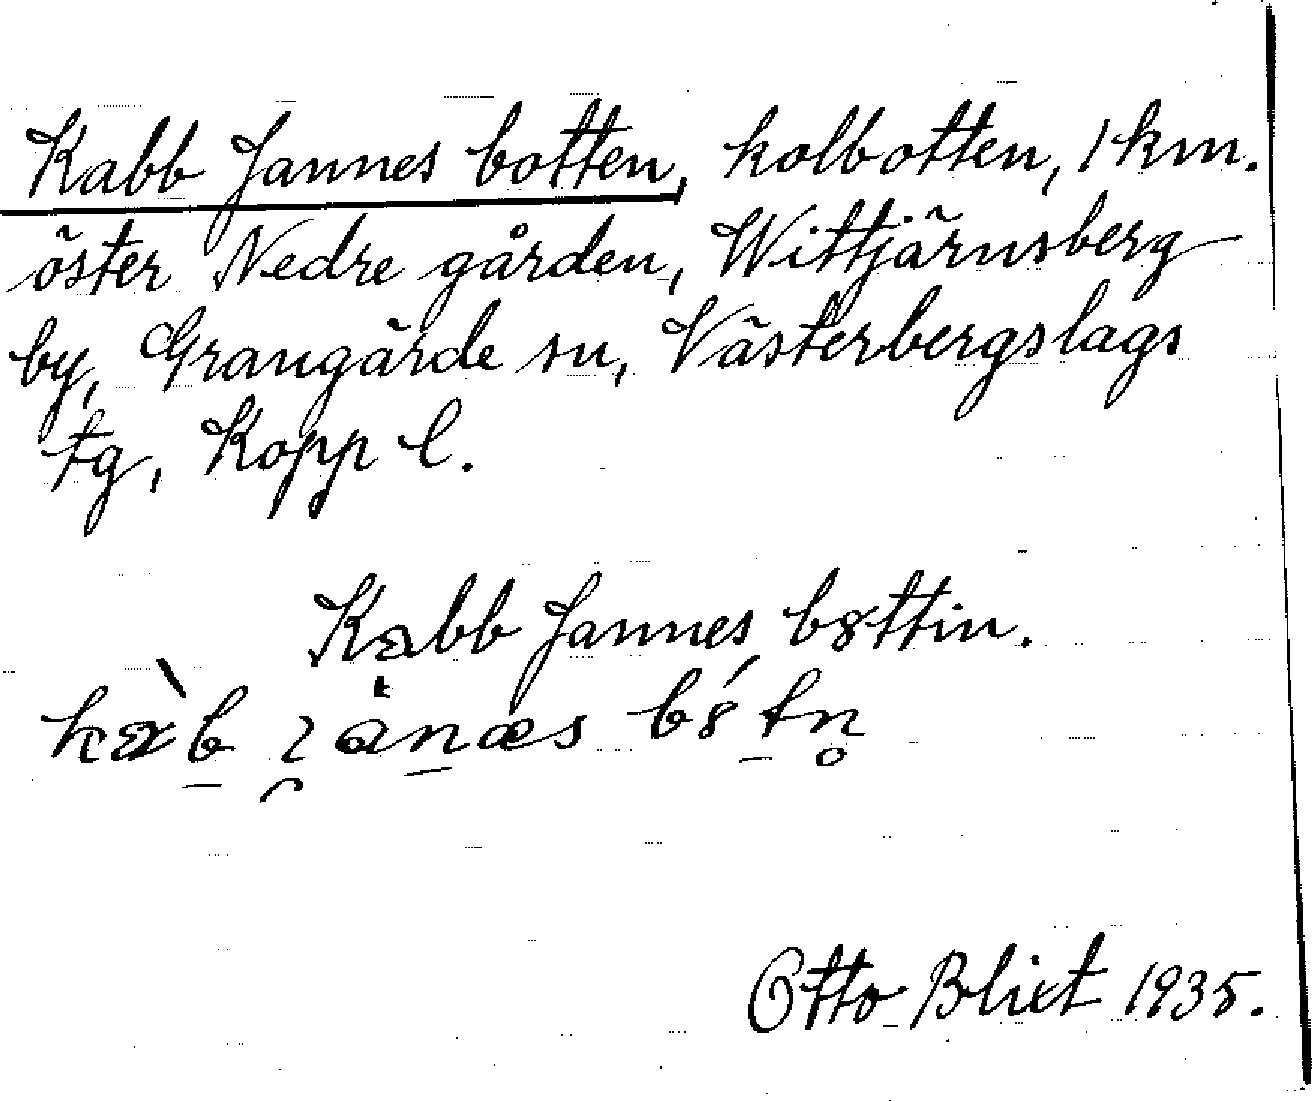 Kabb Jannes botten, kolbotten, 1 km.
öster Nedre gården, Wittjärnsberg
by, Grangärde sn, Västerbergslags
tg, Kopp l.
Kabb Jannes bȣttin.
Otto Blixt 1935.